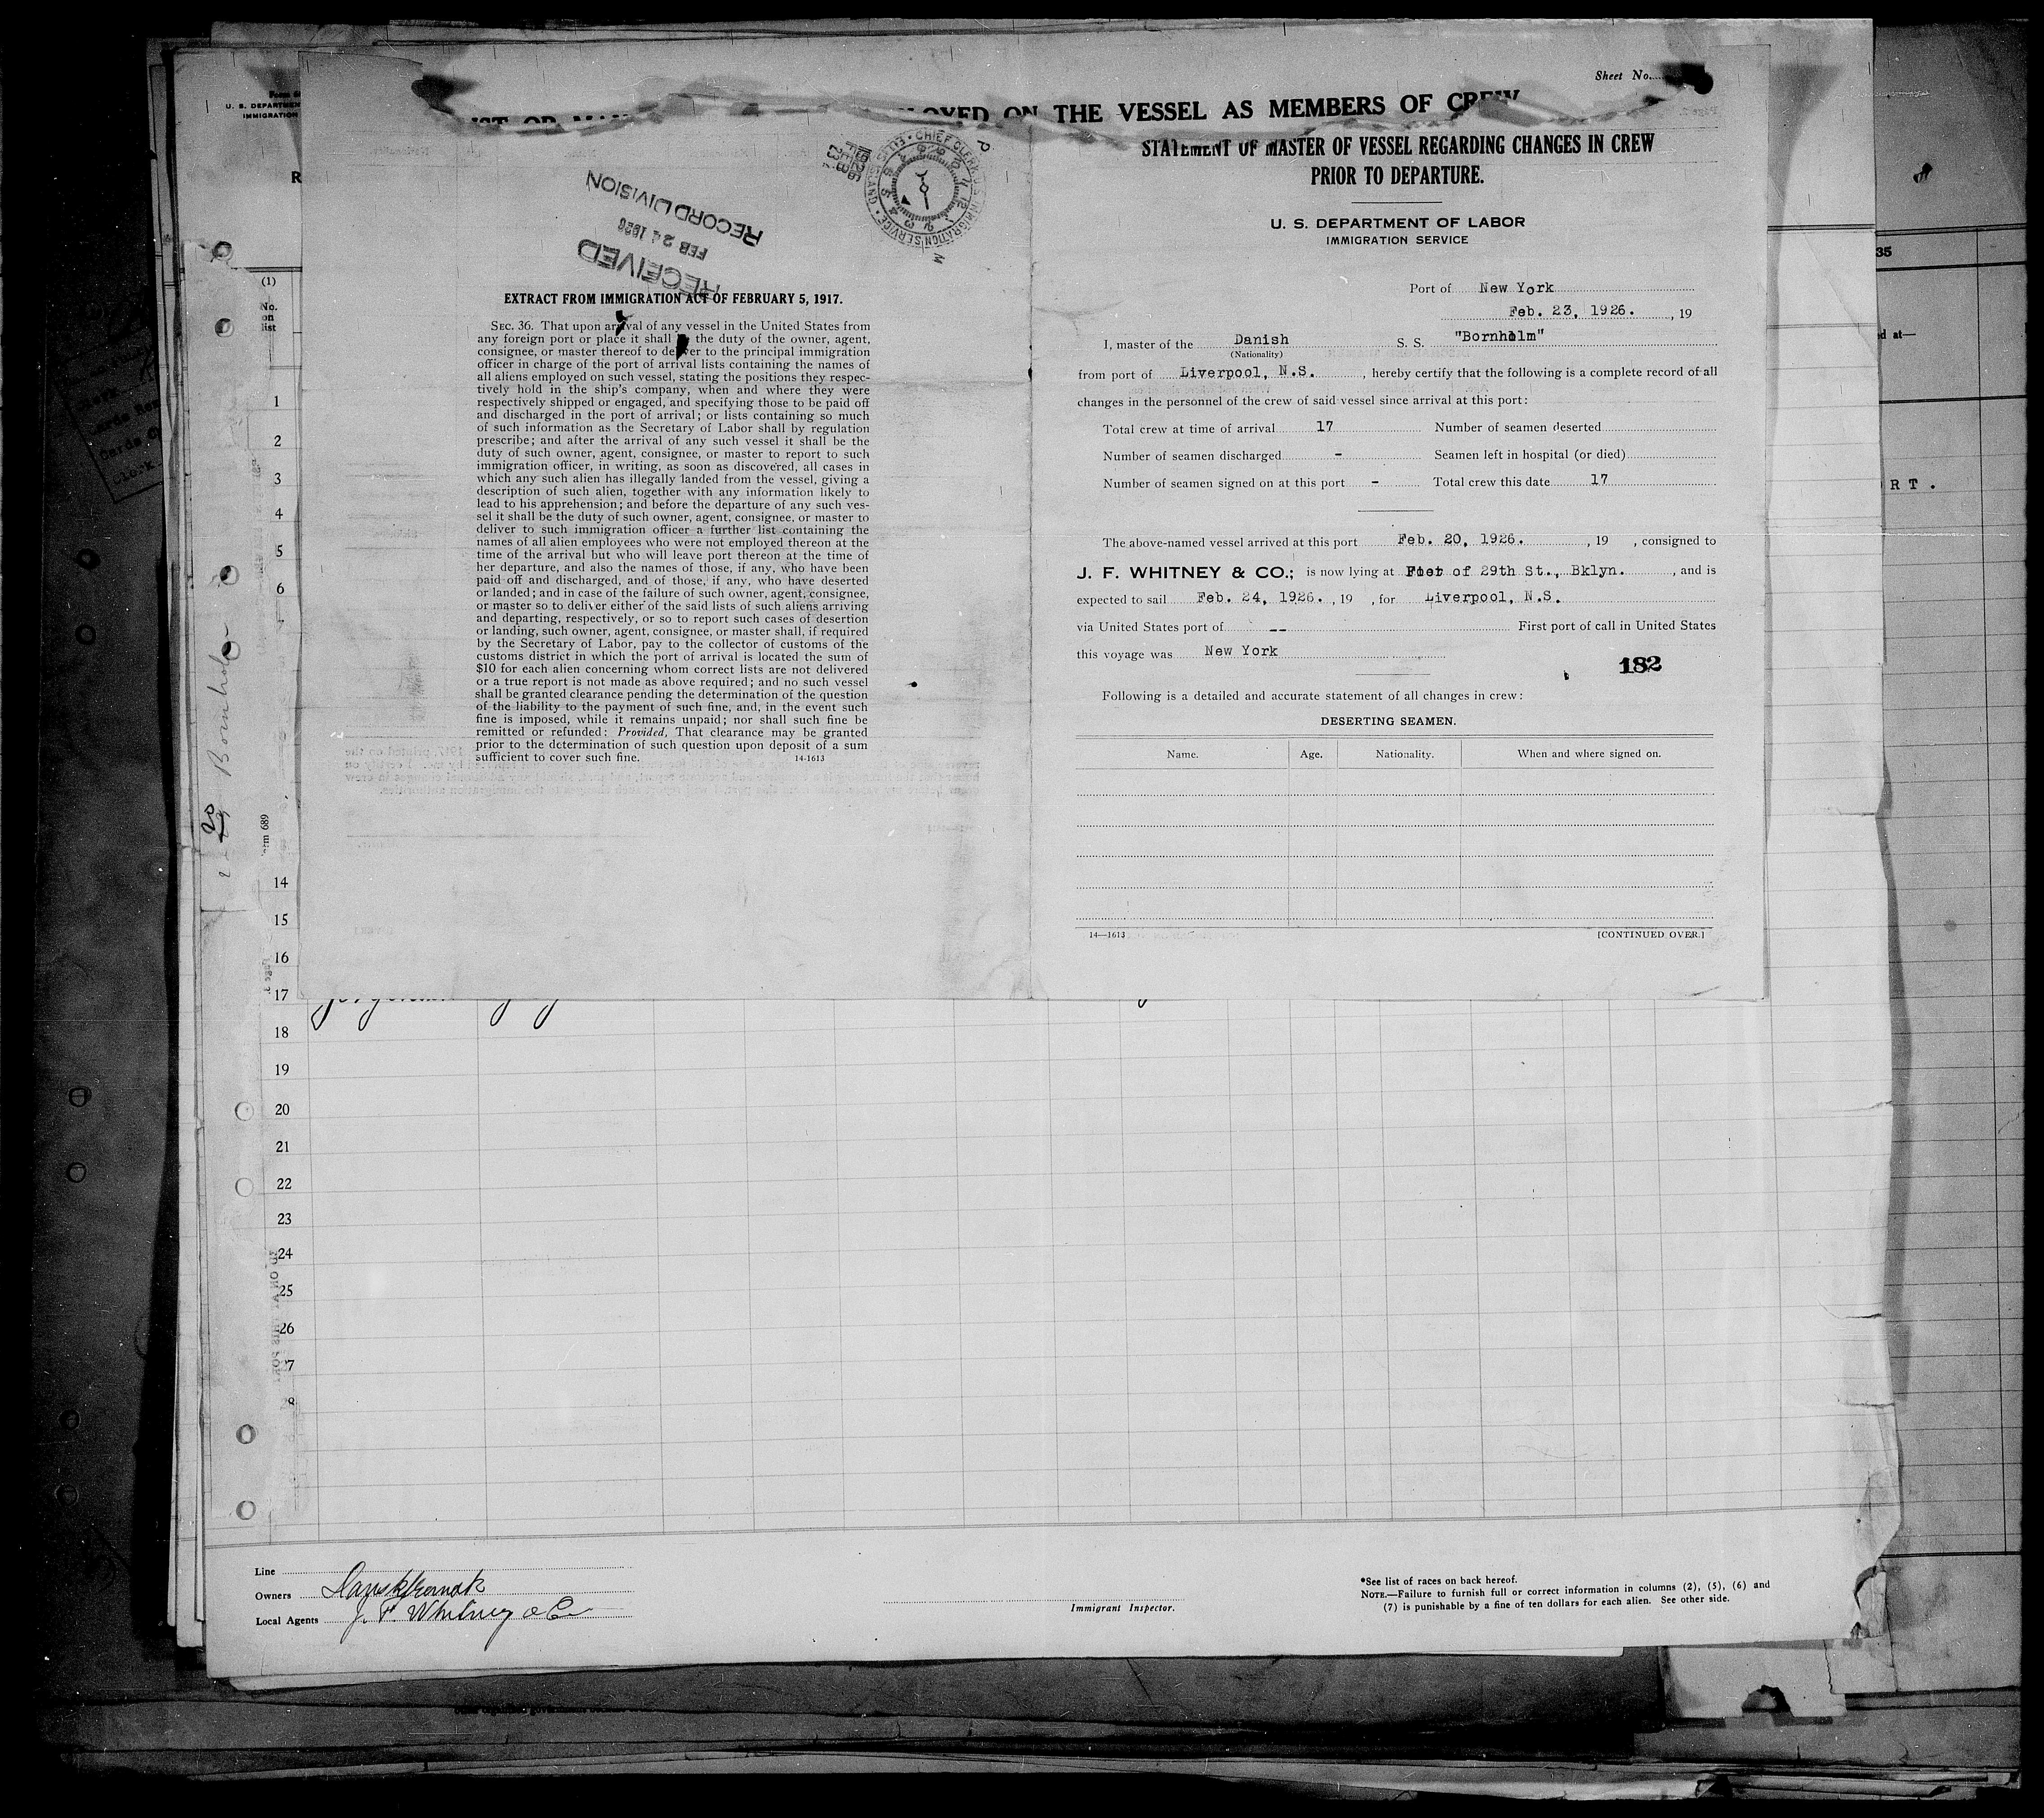 Sheet No.
THE VESSEL AS MEMBERS OF CREW
U. S. DEPARTMENT
IMMIGRATION
RECEIVED
FEB 24 1926
RECORD DIVISION
CHIEF CLERK U.S. IMMIGRATION SERVICE ELLIS ISLAND
1926 FEB 23
EXTRACT FROM IMMIGRATION ACT OF FEBRUARY 5, 1917.
SEC. 36. That upon arrival of any vessel in the United States from
any foreign port or place it shall be the duty of the owner, agent,
consignee, or master thereof to deliver to the principal immigration
officer in charge of the port of arrival lists containing the names of
all aliens employed on such vessel, stating the positions they respec-
tively hold in the ship's company, when and where they were
respectively shipped or engaged, and specifying those to be paid off
and discharged in the port of arrival; or lists containing so much
of such information as the Secretary of Labor shall by regulation
prescribe; and after the arrival of any such vessel it shall be the
duty of such owner, agent, consignee, or master to report to such
immigration officer, in writing, as soon as discovered, all cases in
which any such alien has illegally landed from the vessel, giving a
description of such alien, together with any information likely to
lead to his apprehension; and before the departure of any such ves-
sel it shall be the duty of such owner, agent, consignee, or master to
deliver to such immigration officer a further list containing the
names of all alien employees who were not employed thereon at the
time of the arrival but who will leave port thereon at the time of
her departure, and also the names of those, if any, who have been
paid off and discharged, and of those, if any, who have deserted
or landed; and in case of the failure of such owner, agent, consignee,
or master so to deliver either of the said lists of such aliens arriving
and departing, respectively, or so to report such cases of desertion
or landing, such owner, agent, consignee, or master shall, if required
by the Secretary of Labor, pay to the collector of customs of the
customs district in which the port of arrival is located the sum of
$10 for each alien concerning whom correct lists are not delivered
or a true report is not made as above required; and no such vessel
shall be granted clearance pending the determination of the question
of the liability to the payment of such fine, and, in the event such
fine is imposed, while it remains unpaid; nor shall such fine be
remitted or refunded: Provided, That clearance may be granted
prior to the determination of such question upon deposit of a sum
sufficient to cover such fine. 14-1613
STATEMENT OF MASTER OF VESSEL REGARDING CHANGES IN CREW
PRIOR TO DEPARTURE.
U. S. DEPARTMENT OF LABOR
IMMIGRATION SERVICE
Port of New York
Feb. 23, 1926. , 19
I, master of the Danish S. S. "Bornholm"
(Nationality)
from port of Liverpool, N.S. , hereby certify that the following is a complete record of all
changes in the personnel of the crew of said vessel since arrival at this port:
Total crew at time of arrival 17 Number of seamen deserted
Number of seamen discharged - Seamen left in hospital (or died)
Number of seamen signed on at this port - Total crew this date 17
The above-named vessel arrived at this port Feb. 20, 1926. , 19 , consigned to
J. F. WHITNEY & CO.; is now lying at Foot of 29th St., Bklyn. , and is
expected to sail Feb. 24, 1926. , 19 , for Liverpool, N.S.
via United States port of -- First port of call in United States
this voyage was New York
182
Following is a detailed and accurate statement of all changes in crew:
DESERTING SEAMEN.
Name. Age. Nationality. When and where signed on.
14—1613 [CONTINUED OVER.]
(1)
No.
on
list
1
2
3
4
5
6
14
15
16
17
18
19
20
21
22
23
24
25
26
Bornholm
20
35
RT.
Line
Owners
Local Agents J. F. Whitney & Co
Immigrant Inspector.
*See list of races on back hereof.
NOTE.—Failure to furnish full or correct information in columns (2), (5), (6) and
(7) is punishable by a fine of ten dollars for each alien. See other side.